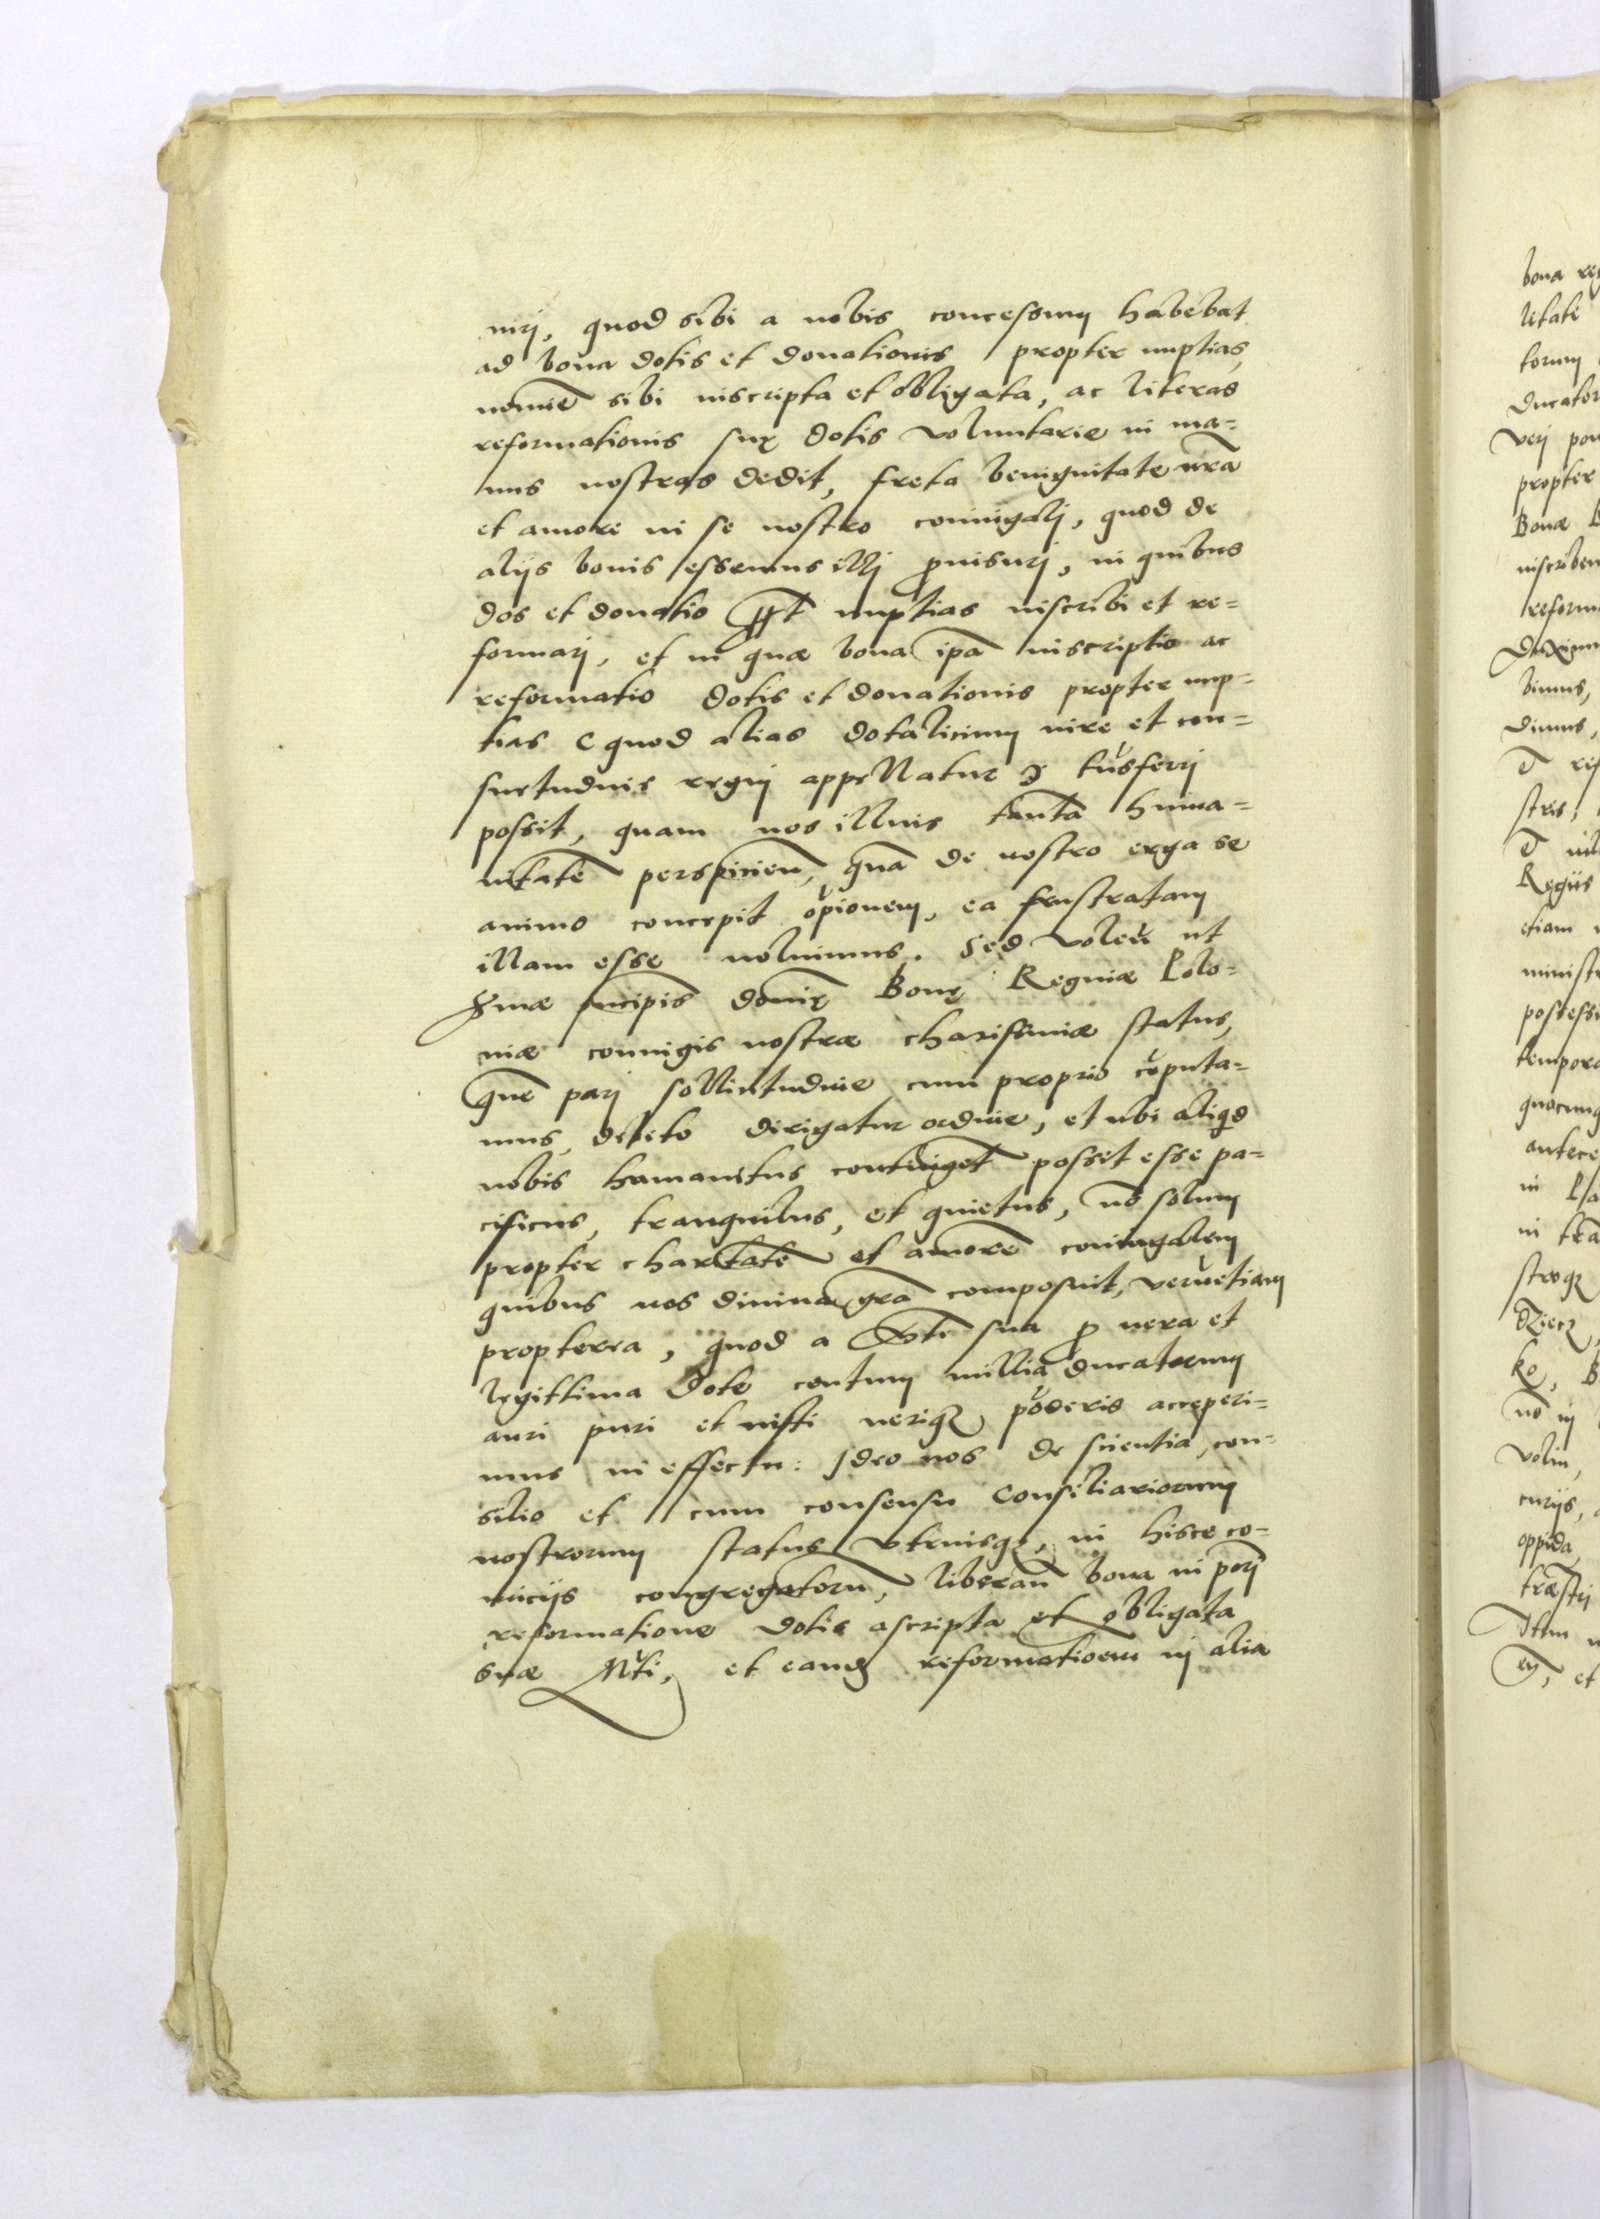 iurj, quod sibi a nobis concessum habebat
ad bona dotis et donationis propter nuptias
nomīe sibi inscripta et obligata, ac literas
reformationis suę dotis voluntarie in ma=
nus nostras dedit, freta benignitate nrā
et amore in se nostro coniugalj, quod de
alijs bonis essemus illj ꝓuisurj, in quibus
dos et donatio ꝓpt nuptias inscribi et re=
formarj, et in quæ bona ipā inscriptio ac
reformatio dotis et donationis propter nup=
tias (quod alias dotalicium iure et con=
suetudine regnj appellatur) trāsferrj
possit, quam nos illius tantā huma=
nitatē perspicien̄, quā de nostro erga se
animo concepit opīonem, ea frustratam
illam esse noluimus. Sed volen̄ ut
Srmæ principis dom̄ę Bonę Reginæ Polo=
niæ coniugis nostræ charissimæ status,
quē parj sollicitudine cum proprio cōputa=
mus, debito dirigatur ordine, et ubi aliqd
nobis humanitus contingēt possit esse pa=
cificus, tranquilus, et quietus, nō solum
propter charitatē et amorē coniugalem
quibus nos diuina grā composuit, verūetiam
propterea, quod a Mte sua ꝓ uera et
legittima dote centum millia ducatorum
auri puri et iusti ueriqꝫ pōderis acceperi=
mus in effectu: Ideo nos de scientia, con=
silio et cum consensu Consiliariorum
nostrorum status vtriusqꝫ, in hisce co=
micijs congregatorū, liberan̄ bona in porj
reformatione dotis ascripta et obligata
suæ Mti, et eandē reformatioem in alia
bona re
litate
torum
ducator
verj pon
propter
Bonæ
inscriben
reform
Duxim
bimus,
dimus,
stris,
Regijs
etiam
minist
possessi
tempor
quocunq
antece
in
in tra
stroqꝫ
volin,
curijs,
oppida
Item
et